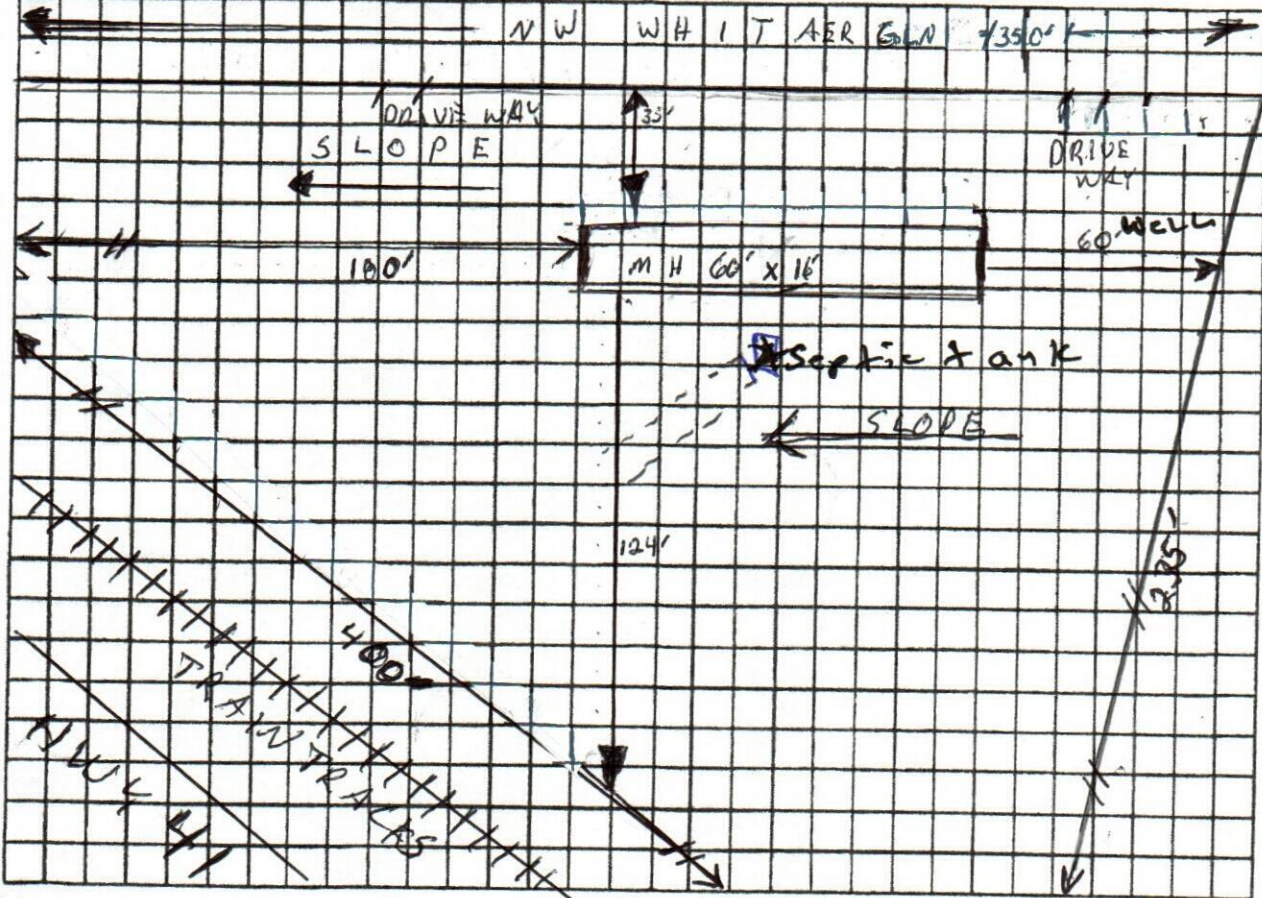 NW WHITAER GLN 350'
DRIVE WAY
35'
SLOPE
DRIVE
WAY
60' WELL
180'
MH 60' x 16'
Septic tank
SLOPE
124'
235'
400
TRAIN TRACKS
41